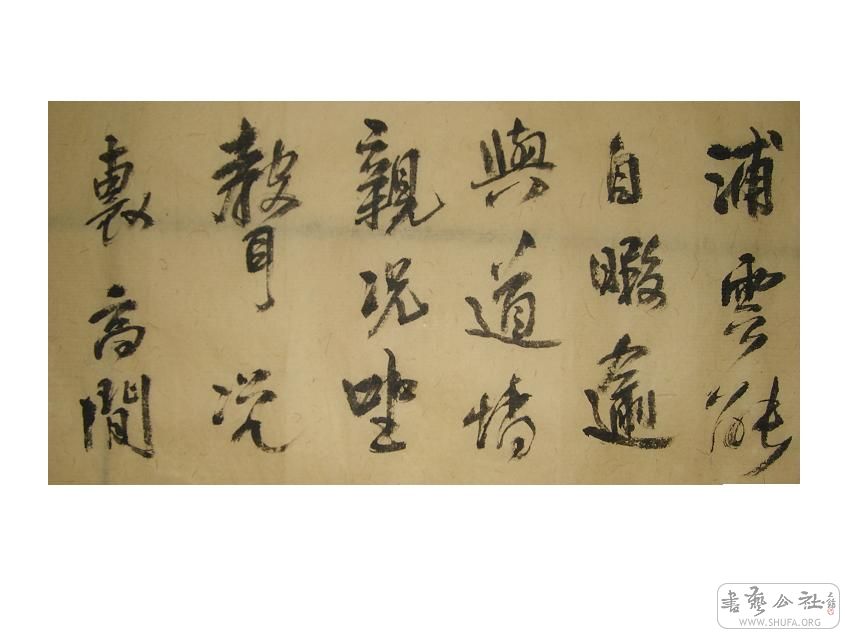 浦雲能
自暇逾
與道情
親况
聲況
裏高閒
書藝公社
WWW.SHUFA.ORG